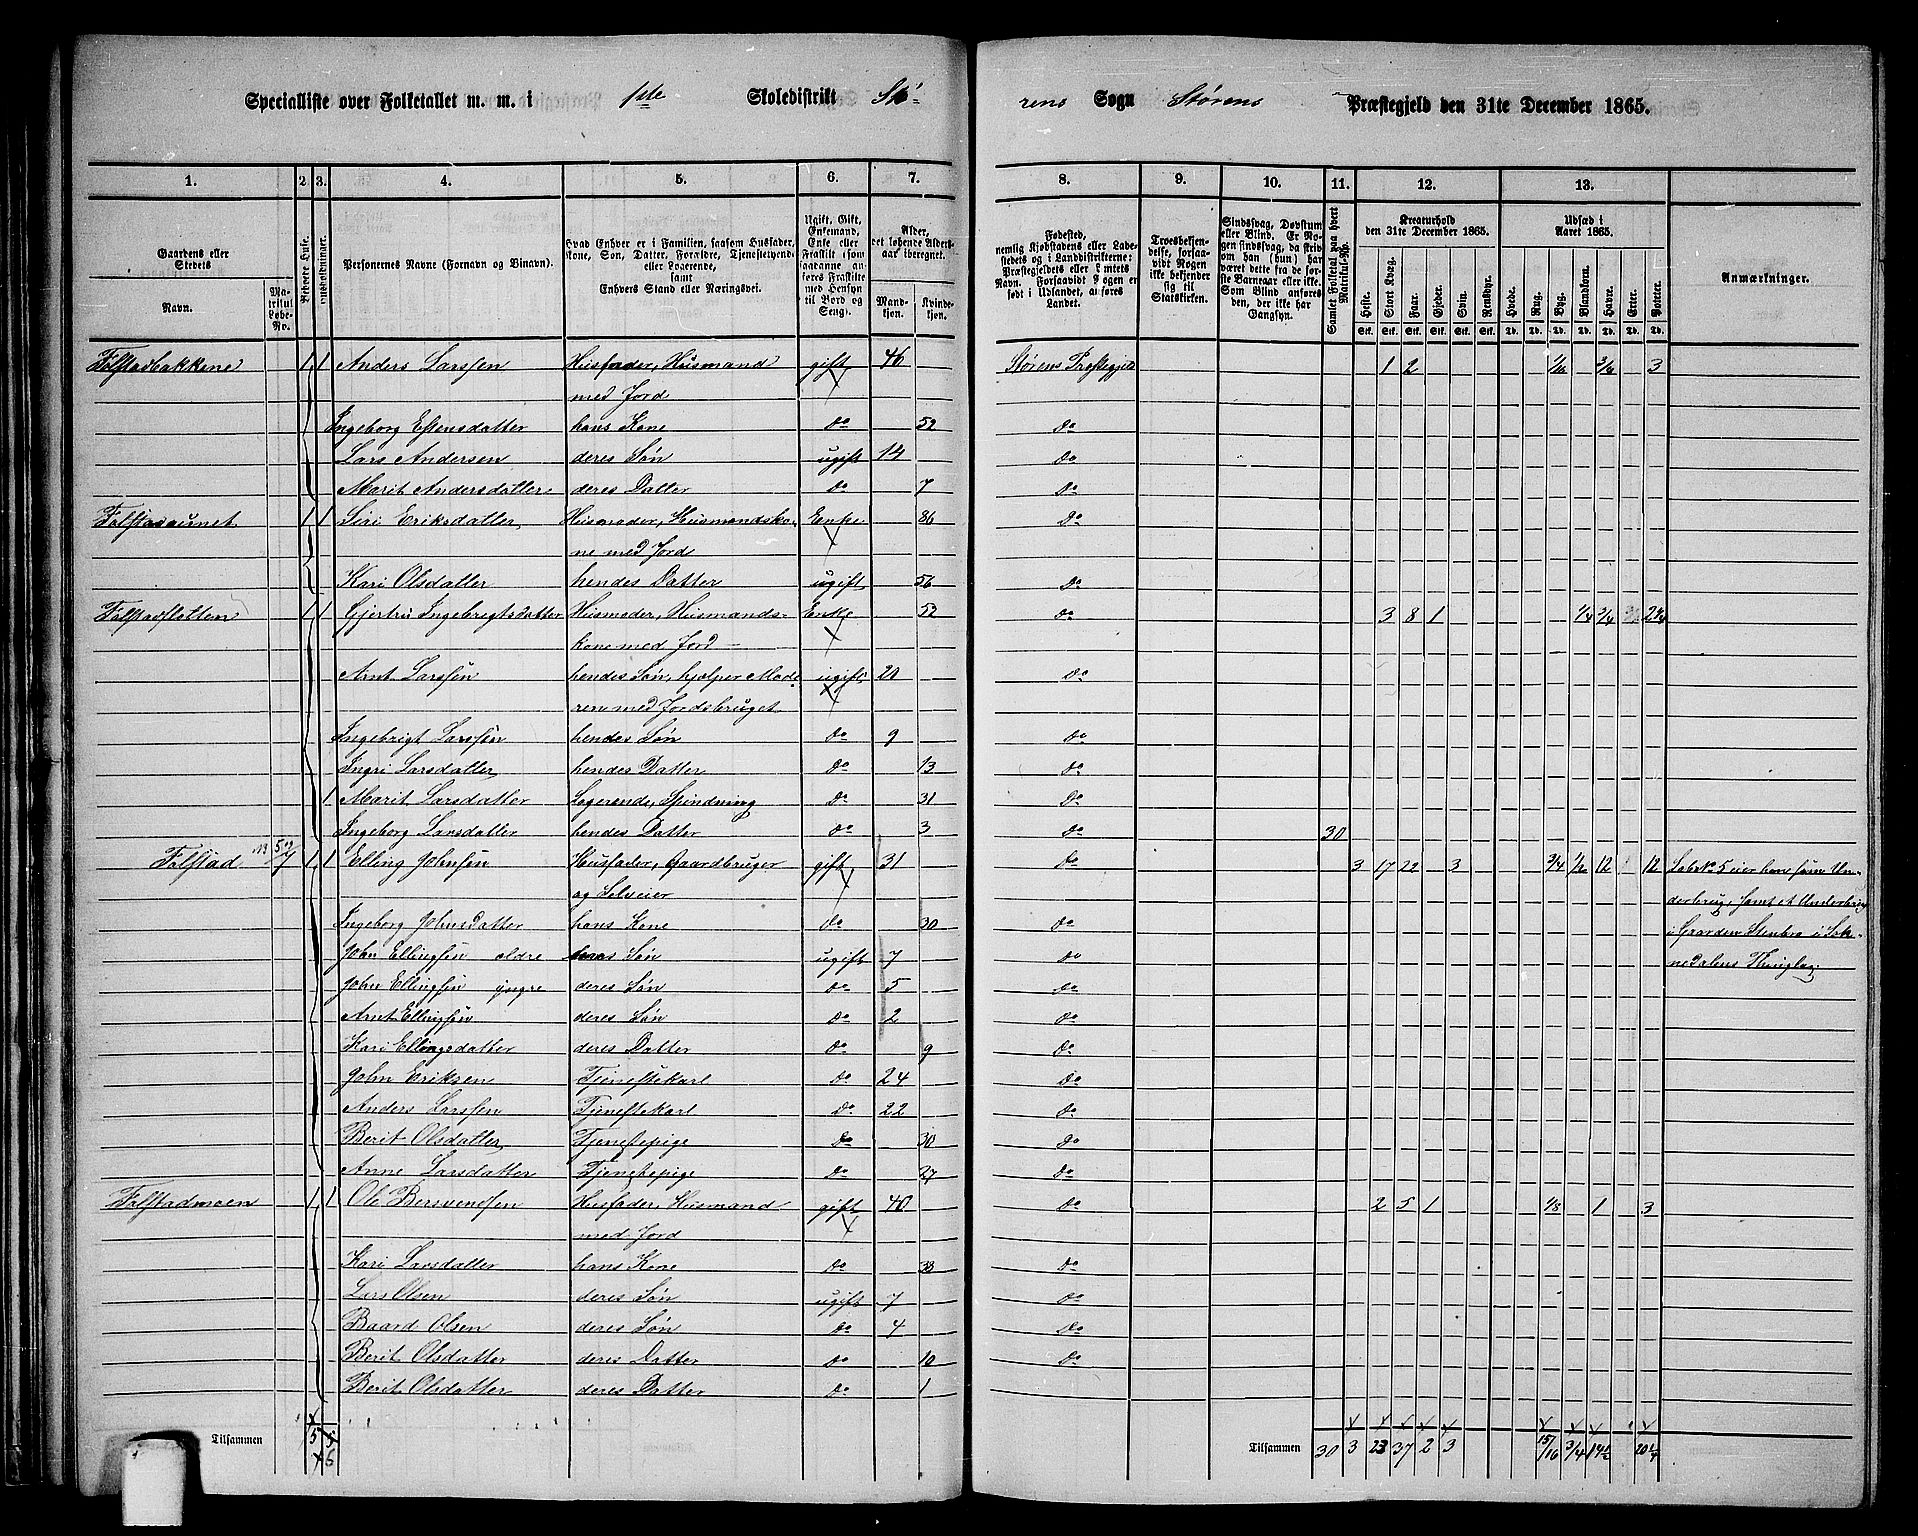 Specialliste over Folketallet m. m. i 1ste Skoledistrikt Stø-
rens Sogn Størens Præstegjeld den 31te December 1865.
1. 2. 3. 4. 5. 6. 7.
8. 9. 10. 11. 12. 13.
Gaardens eller Stedets
Navn.
Matrikul Løbe-No.
Beboede Huse.
Husholdninger.
Personernes Navne (Fornavn og Tilnavn).
Hvad Enhver er i Familien, saasom Husfader, Kone, Søn, Datter, Forældre, Tjenestetyende eller Logerende, samt Enhvers Stand eller Næringsvei.
Ugift, Gift, Enkemand, Enke eller Fraskilt
Alder, det løbende Aldersaar iberegnet.
Mandkjøn. Kvindekjøn.
Fødested,
Troesbekjendelse, forsaavidt Nogen ikke bekjender sig til Statskirken.
Samlet Folketal paa hvert Matrikul-No.
Kreaturhold den 31te December 1865.
Heste. Stort Kvæg. Faar. Gjeder. Svin. Rensdyr.
Udsæd i Aaret 1865.
Hvede. Rug. Byg. Blandkorn. Havre. Erter. Poteter.
Anmærkninger.
Folstadbakkene 1 1 Anders Larssen Husfader, Husmand gift 46 Størens Præstegjeld 1 2 1/16 3/4 3
med Jord
Ingeborg Estensdatter hans Kone do 52 do
Lars Andersen deres Søn ugift 14 do
Marit Andersdatter deres Datter do 7 do
Folstadaunet 1 1 Siri Eriksdatter Husmoder, Husmandsko- Enke 86 do
ne med Jord
Kari Olsdatter hendes Datter ugift 56 do
Folstadslotten 1 1 Gjertru Ingebrigtsdatter Husmoder, Husmands- Enke 52 do 3 8 1 1/4 3/4 2 1/4
kone med Jord
Arnt Larssen hendes Søn, hjelper Mode- ugift 20 do
ren med Jordsbruget
Ingebrigt Larssen hendes Søn do 9 do
Ingri Larsdatter hendes Datter do 13 do
1 Marit Larsdatter Logerende, Spindning do 31 do
Ingeborg Larsdatter hendes Datter do 3 do 30
Folstad 1 1 Elling Johnsen Husfader, Gaardbruger gift 31 do 3 17 22 3 3/4 1/2 12 12 Løbe No 5 eier han som Un-
og Selveier derbrug, samt et Underbrug
Ingeborg Johnsdatter hans Kone do 30 do
i Gaarden Stenbro i Sok-
John Ellingsen ældre deres Søn ugift 7 do
nedalens Thinglag.
John Ellingsen yngre deres Søn do 5 do
Arnt Ellingsen deres Søn do 2 do
Kari Ellingsdatter deres Datter do 9 do
John Eriksen Tjenestekarl do 24 do
Anders Larssen Tjenestekarl do 22 do
Berit Olsdatter Tjenestepige do 30 do
Anne Larsdatter Tjenestepige do 27 do
Folstadmoen 1 1 Ole Bersvendsen Husfader, Husmand gift 40 do 2 5 1 1/8 1 3
med Jord
Kari Larsdatter hans Kone do 38 do
Lars Olsen deres Søn ugift 7 do
Baard Olsen deres Søn do 4 do
Berit Olsdatter deres Datter do 10 do
Berit Olsdatter deres Datter do 1 do
Tilsammen 5 6 Tilsammen 30 3 23 37 2 3 15/16 3/4 14 1/2 20 1/4